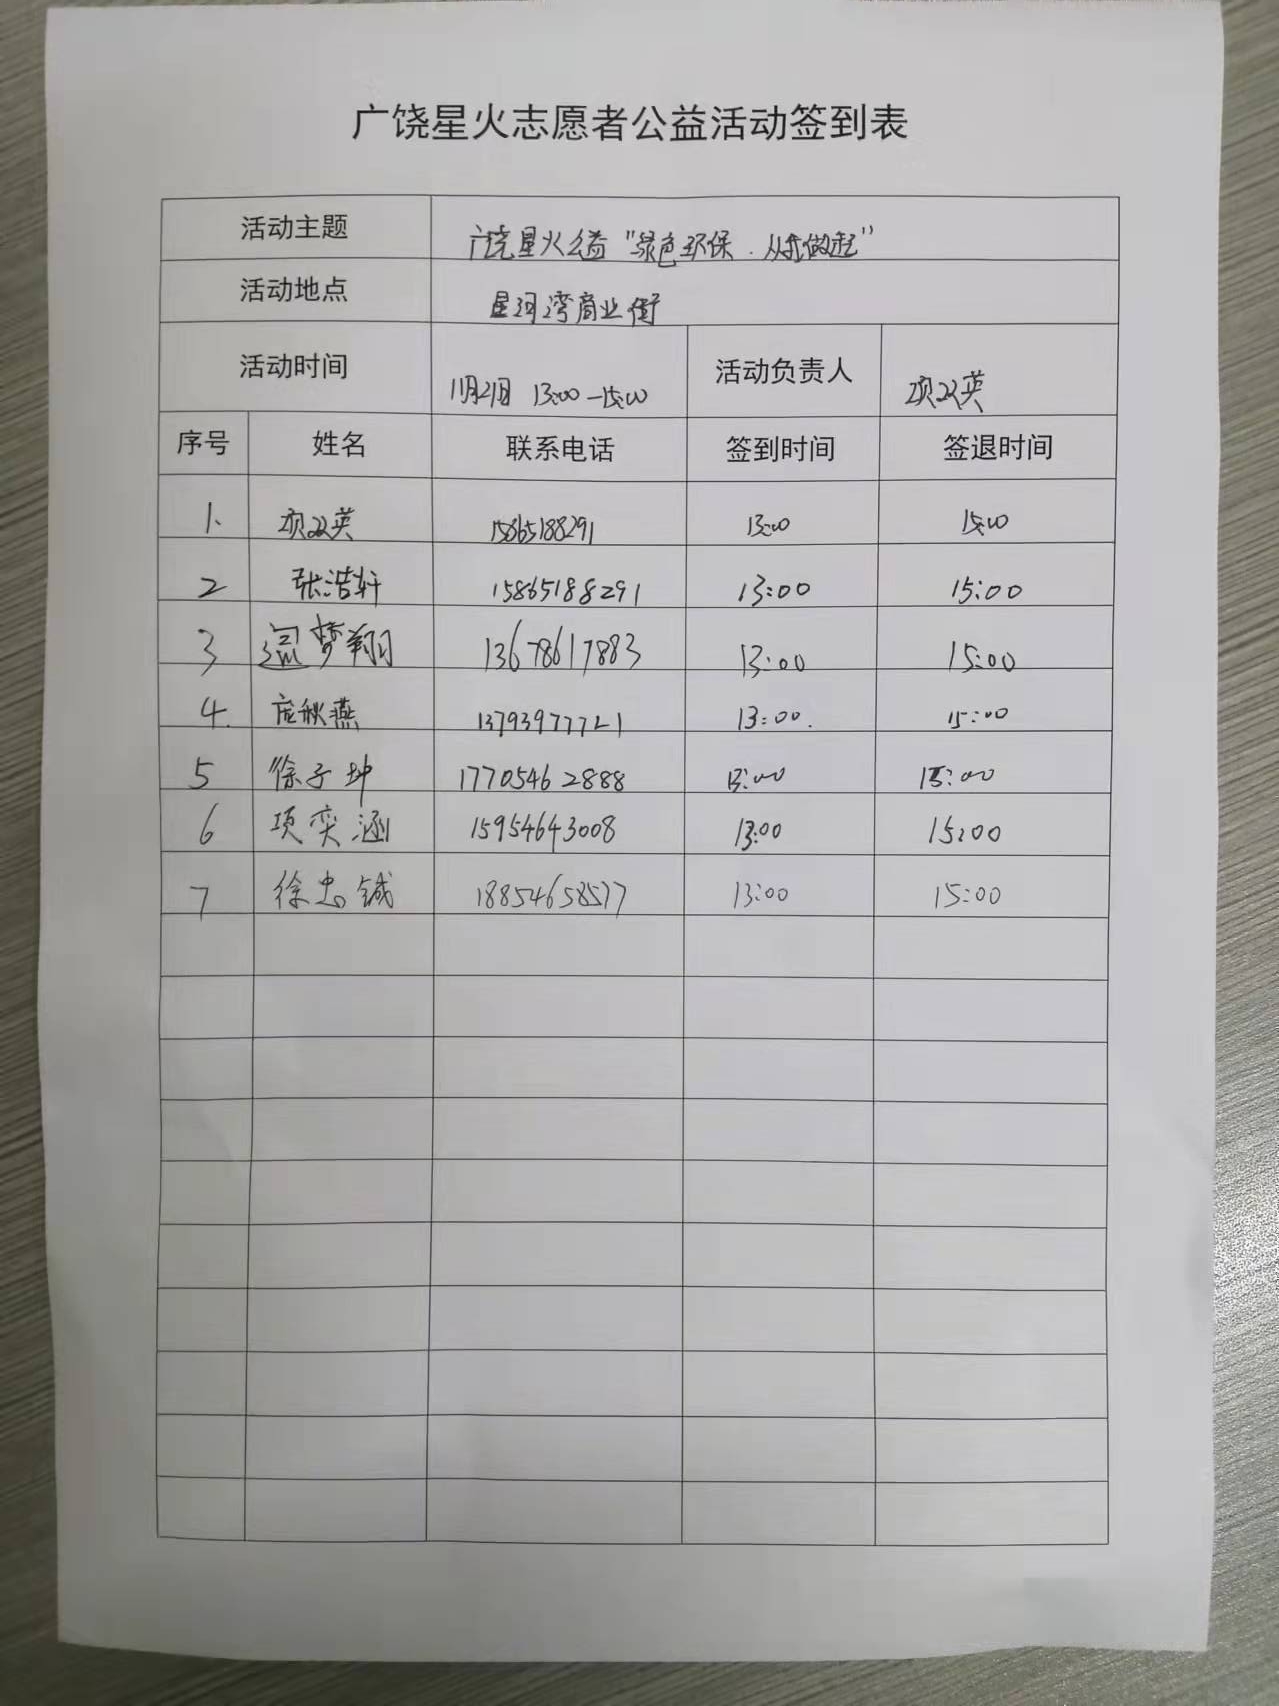 广饶星火志愿者公益活动签到表
活动主题 广饶星火公益"绿色环保.从我做起"
活动地点 星河湾商业街
活动时间 11月21日 13:00-15:00 活动负责人 项双英
序号 姓名 联系电话 签到时间 签退时间
1. 项双英 15865188291 13:00 15:00
2 张浩轩 15865188291 13:00 15:00
3 梦翔 13678617883 13:00 15:00
4. 庞秋燕 13793977721 13:00. 15:00
5 徐子坤 17705462888 13:00 15:00
6 项奕涵 15954643008 13:00 15:00
7 徐忠铖 18854658577 13:00 15:00